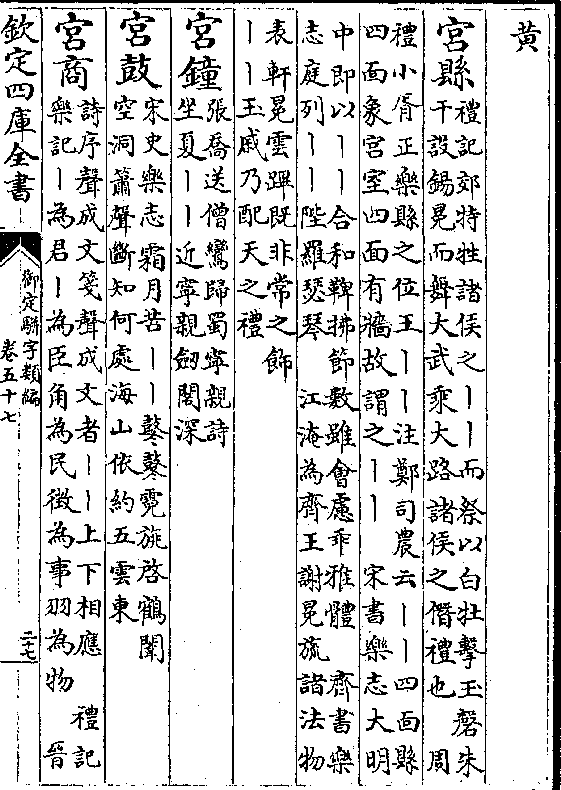 黄
宮縣 禮記郊特牲諸侯之丨丨而祭以白牡擊玉磬朱
干設錫冕而舞大武乘大路諸侯之僭禮也 周
禮小胥正樂縣之位王丨丨注鄭司農云丨丨四面縣
四面象宮室四面有牆故謂之丨丨 宋書樂志大明
中即以丨丨合和鞞拂節數雖會慮乖雅體 齊書樂
志庭列丨丨陛羅瑟琴 江淹為齊王謝冕旒諸法物
表軒冕雲蹕既非常之飾
丨丨玉戚乃配天之禮
宮鐘 張喬送僧鸞歸蜀寧親詩
坐夏丨丨近寧親劔閣深
宮鼓 宋史樂志霜月苦丨丨鼕鼕霓旌啓鶴闈
空洞簫聲斷知何處海山依約五雲東
宮商 詩序聲成文箋聲成文者丨丨上下相應 禮記
樂記丨為君丨為臣角為民徴為事羽為物 晉
欽定四庫全書
御定駢字類編
卷五十七
二七